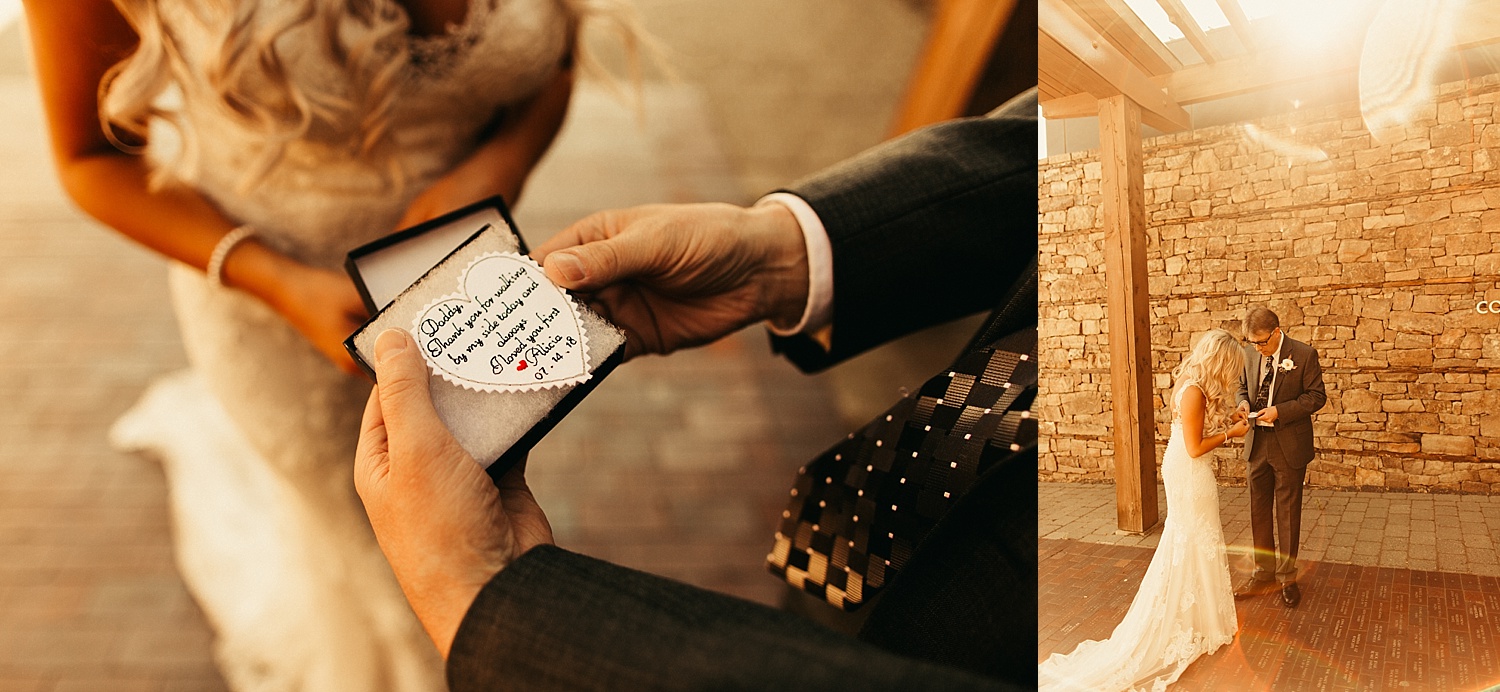 Daddy,
Thank you for walking
by my side today and
always.
I loved you first
Alicia
07.14.18
CO